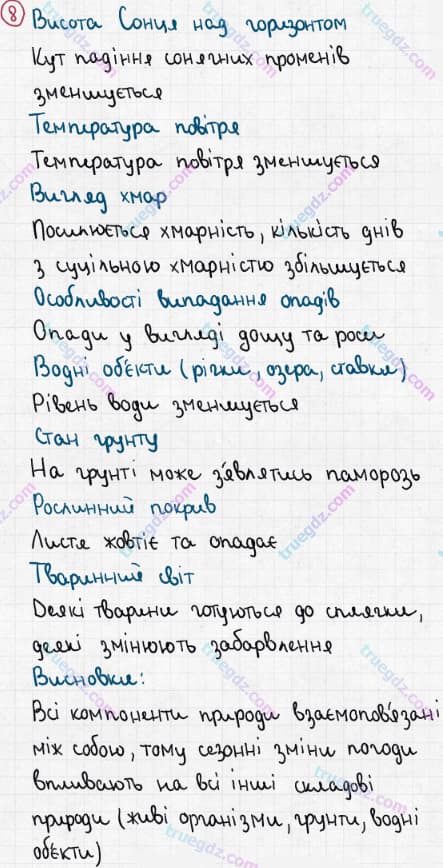 8 Висота Сонця над горизонтом
Кут падіння сонячних променів
зменшується
Температура повітря
Температура повітря зменшується
Вигляд хмар
Посилюється хмарність, кількість днів
з суцільною хмарністю збільшується
Особливості випадання опадів
Опади у вигляді дощу та роси
Водні об'єкти (річки, озера, ставки)
Рівень води зменшується
Стан грунту
На грунті може з'являтись паморозь
Рослинний покрив
Листя жовтіє та опадає
Тваринний світ
Деякі тварини готуються до сплячки,
деякі змінюють забарвлення
Висновки:
Всі компоненти природи взаємопов'язані
між собою, тому сезонні зміни погоди
впливають на всі інші складові
природи (живі організми, грунти, водні
об'єкти)
truegdz.com